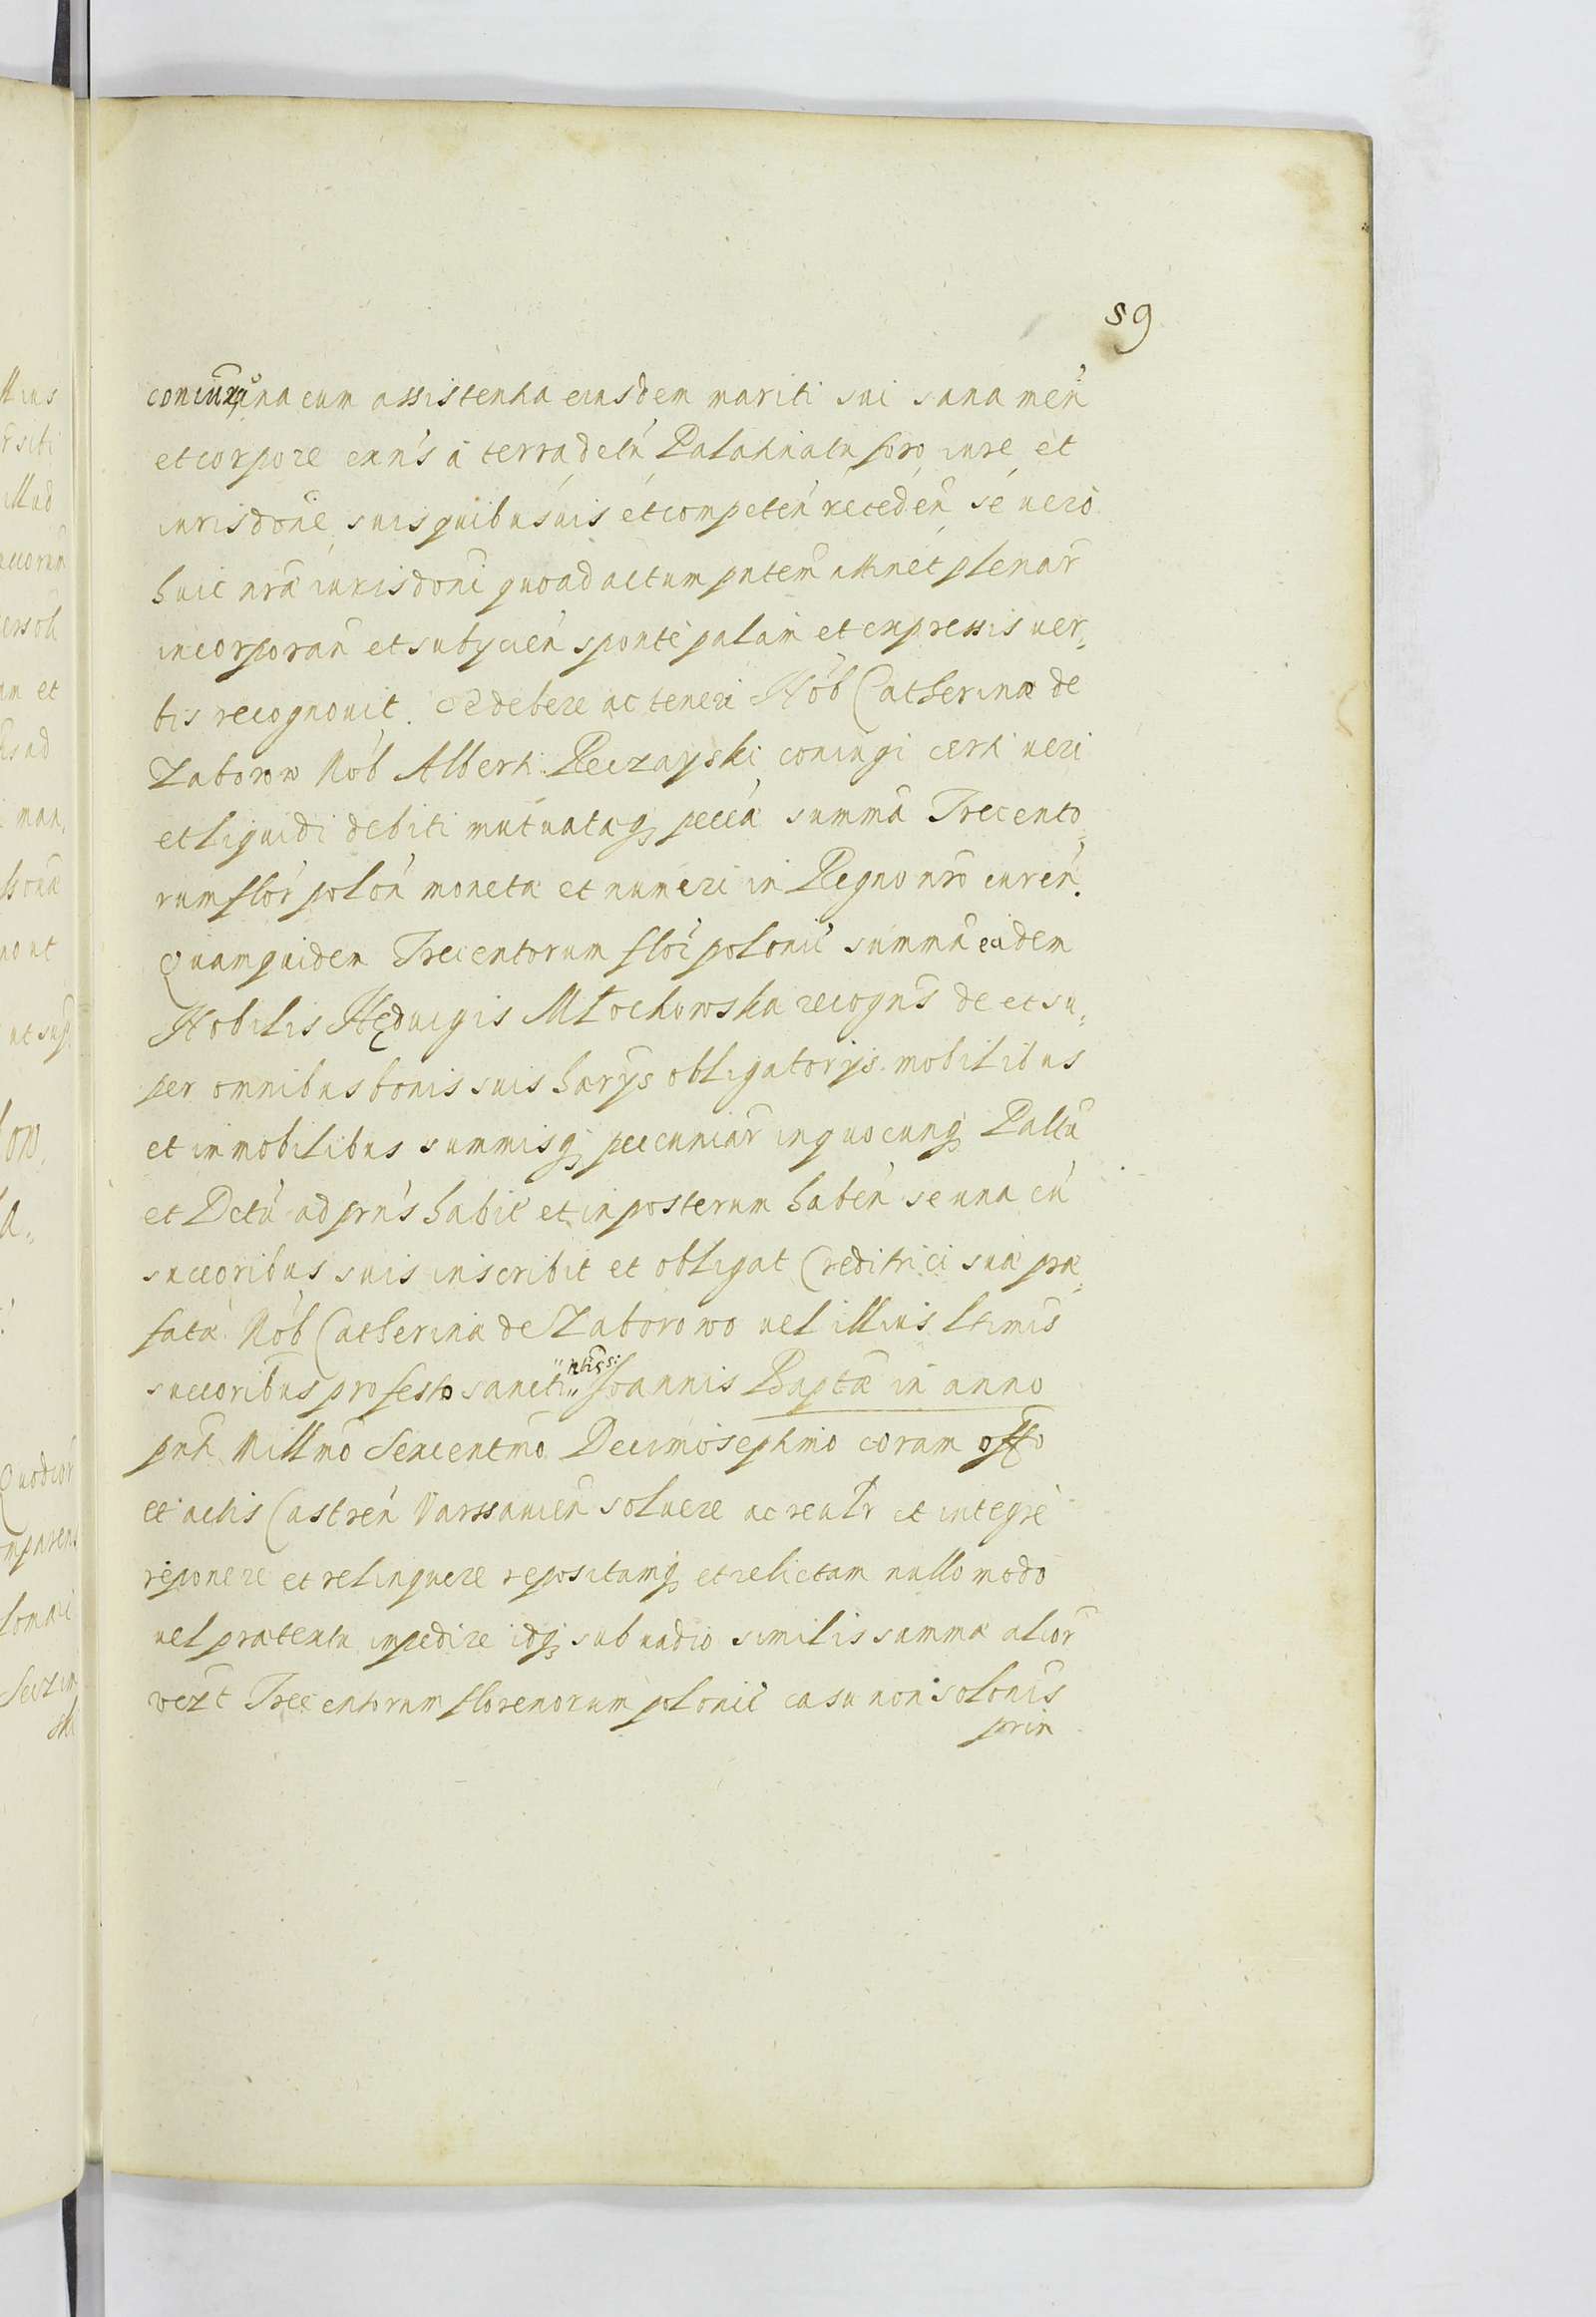 59
coniunx una cum assistentia eiusdem mariti sui sana men̄
et corpore exn̄s à terra dctū Palatinatu foro iure et
iurisdōne suis quibusuis et competeń receden̄ se uero
huic nr̄æ iurisdoni quoad actum pn̄tem attinet plenar̄
incorporan̄ et subycien̄ sponte palam et expressis uer„
bis recognouit. Se debere ac teneri Nob Catherinæ de
Zaborow Nob Alberti Reczayski coniugi certi ueri
et liquidi debiti mutuatæq; pecćæ summā Trecento„
rum flor̄ polon̄ monetæ et numeri in Regno nr̄o curen̄.
Quamquidem Trecentorum flor̄ polonic̄ summā eadem
Nobilis Hęduigis Młochowska recogn̄s de et su„
per omnibus bonis suis hærys obligatorys mobilibus
et immobilibus summisq; pecuniar̄ in quocunq; Pallū
et Dctū ad prn̄s habit̄ et in posterum haben̄ se una cū
succoribus suis inscribit et obligat Creditrici suæ præ„
fatæ Nob Catherinæ de Zaborowo uel illius ltimis
succoribus pro festo sancti Joannis Baptæ in anno
pn̄ti Millmo Sexcentmo Decimoseptimo coram offo
et actis Castren̄ Varssauien̄ soluere ac realr̄ et integre
reponere et relinquere repositamq; et relictam nullo modo
uel prætextu impedire idq; sub uadio similis summæ alior̄
vezt Trecentorum florenorum polonic̄ casu non solonis
prin